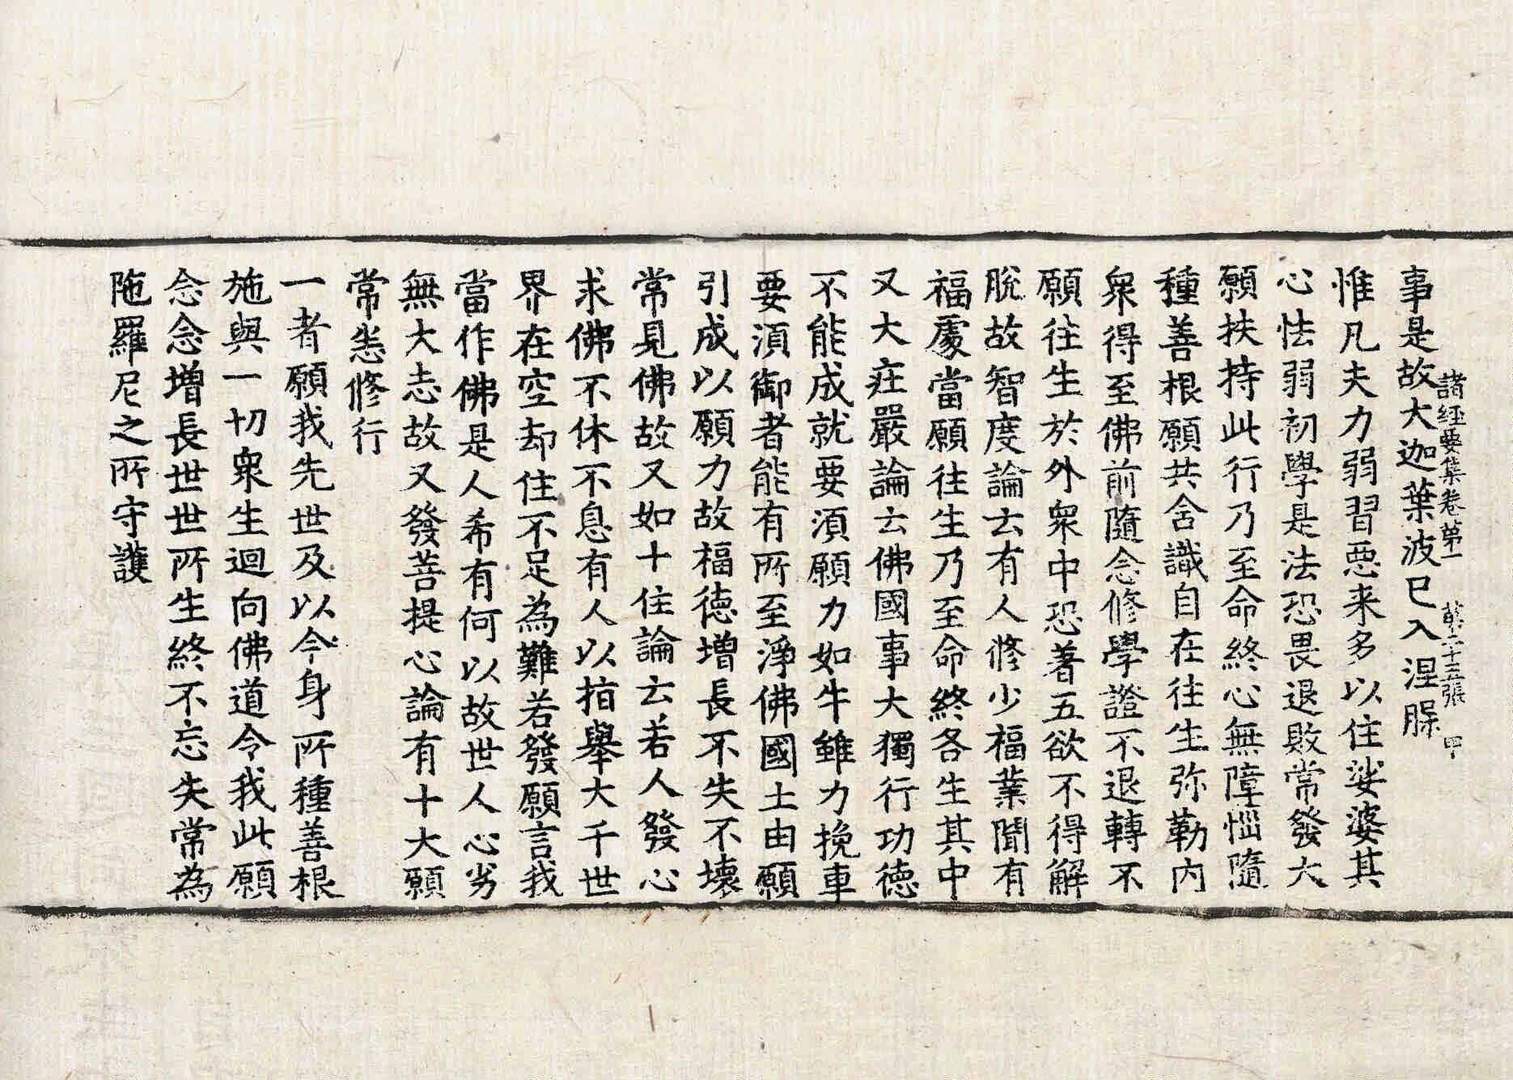 諸經要集卷第一 第二十五張 甲
事是故大迦葉波已入涅腂
惟凡夫力弱習惡来多以住娑婆其
心怯弱初學是法恐畏退敗常發大
願扶持此行乃至命終心無障惱隨
種善根願共含識自在往生弥勒內
衆得至佛前隨念修學證不退轉不
願往生於外衆中恐著五欲不得解
脫故智度論云有人修少福業聞有
福處當願往生乃至命終各生其中
又大莊嚴論云佛國事大獨行功德
不能成就要湏願力如牛雖力挽車
要湏御者能有所至淨佛國土由願
引成以願力故福德增長不失不壞
常見佛故又如十住論云若人發心
求佛不休不息有人以指舉大千世
界在空却住不足為難若發願言我
當作佛是人希有何以故世人心劣
無大志故又發菩提心論有十大願
常恙修行
一者願我先世及以今身所種善根
施與一切衆生迴向佛道令我此願
念念增長世世所生終不忘失常為
陁羅尼之所守護